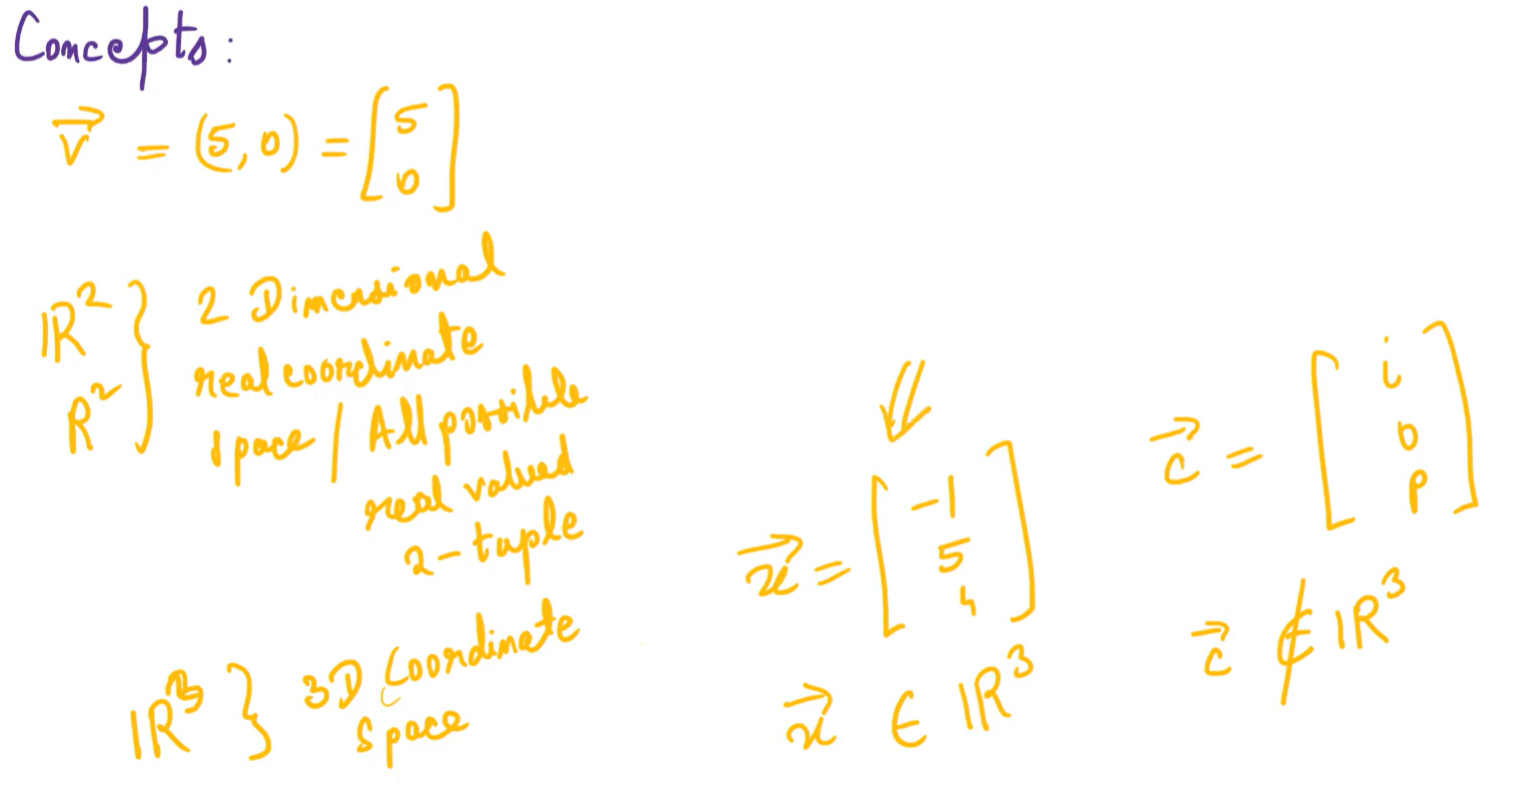 Concepts:
v⃗ = (5,0) = [5
0]
IR² } 2 Dimensional
R² real coordinate
space / All possible
real valued
2-tuple
IR³ } 3D Coordinate
Space
x⃗ = [-1
5
4]
x⃗ ∈ IR³
c⃗ = [i
0
p]
c⃗ ∉ IR³